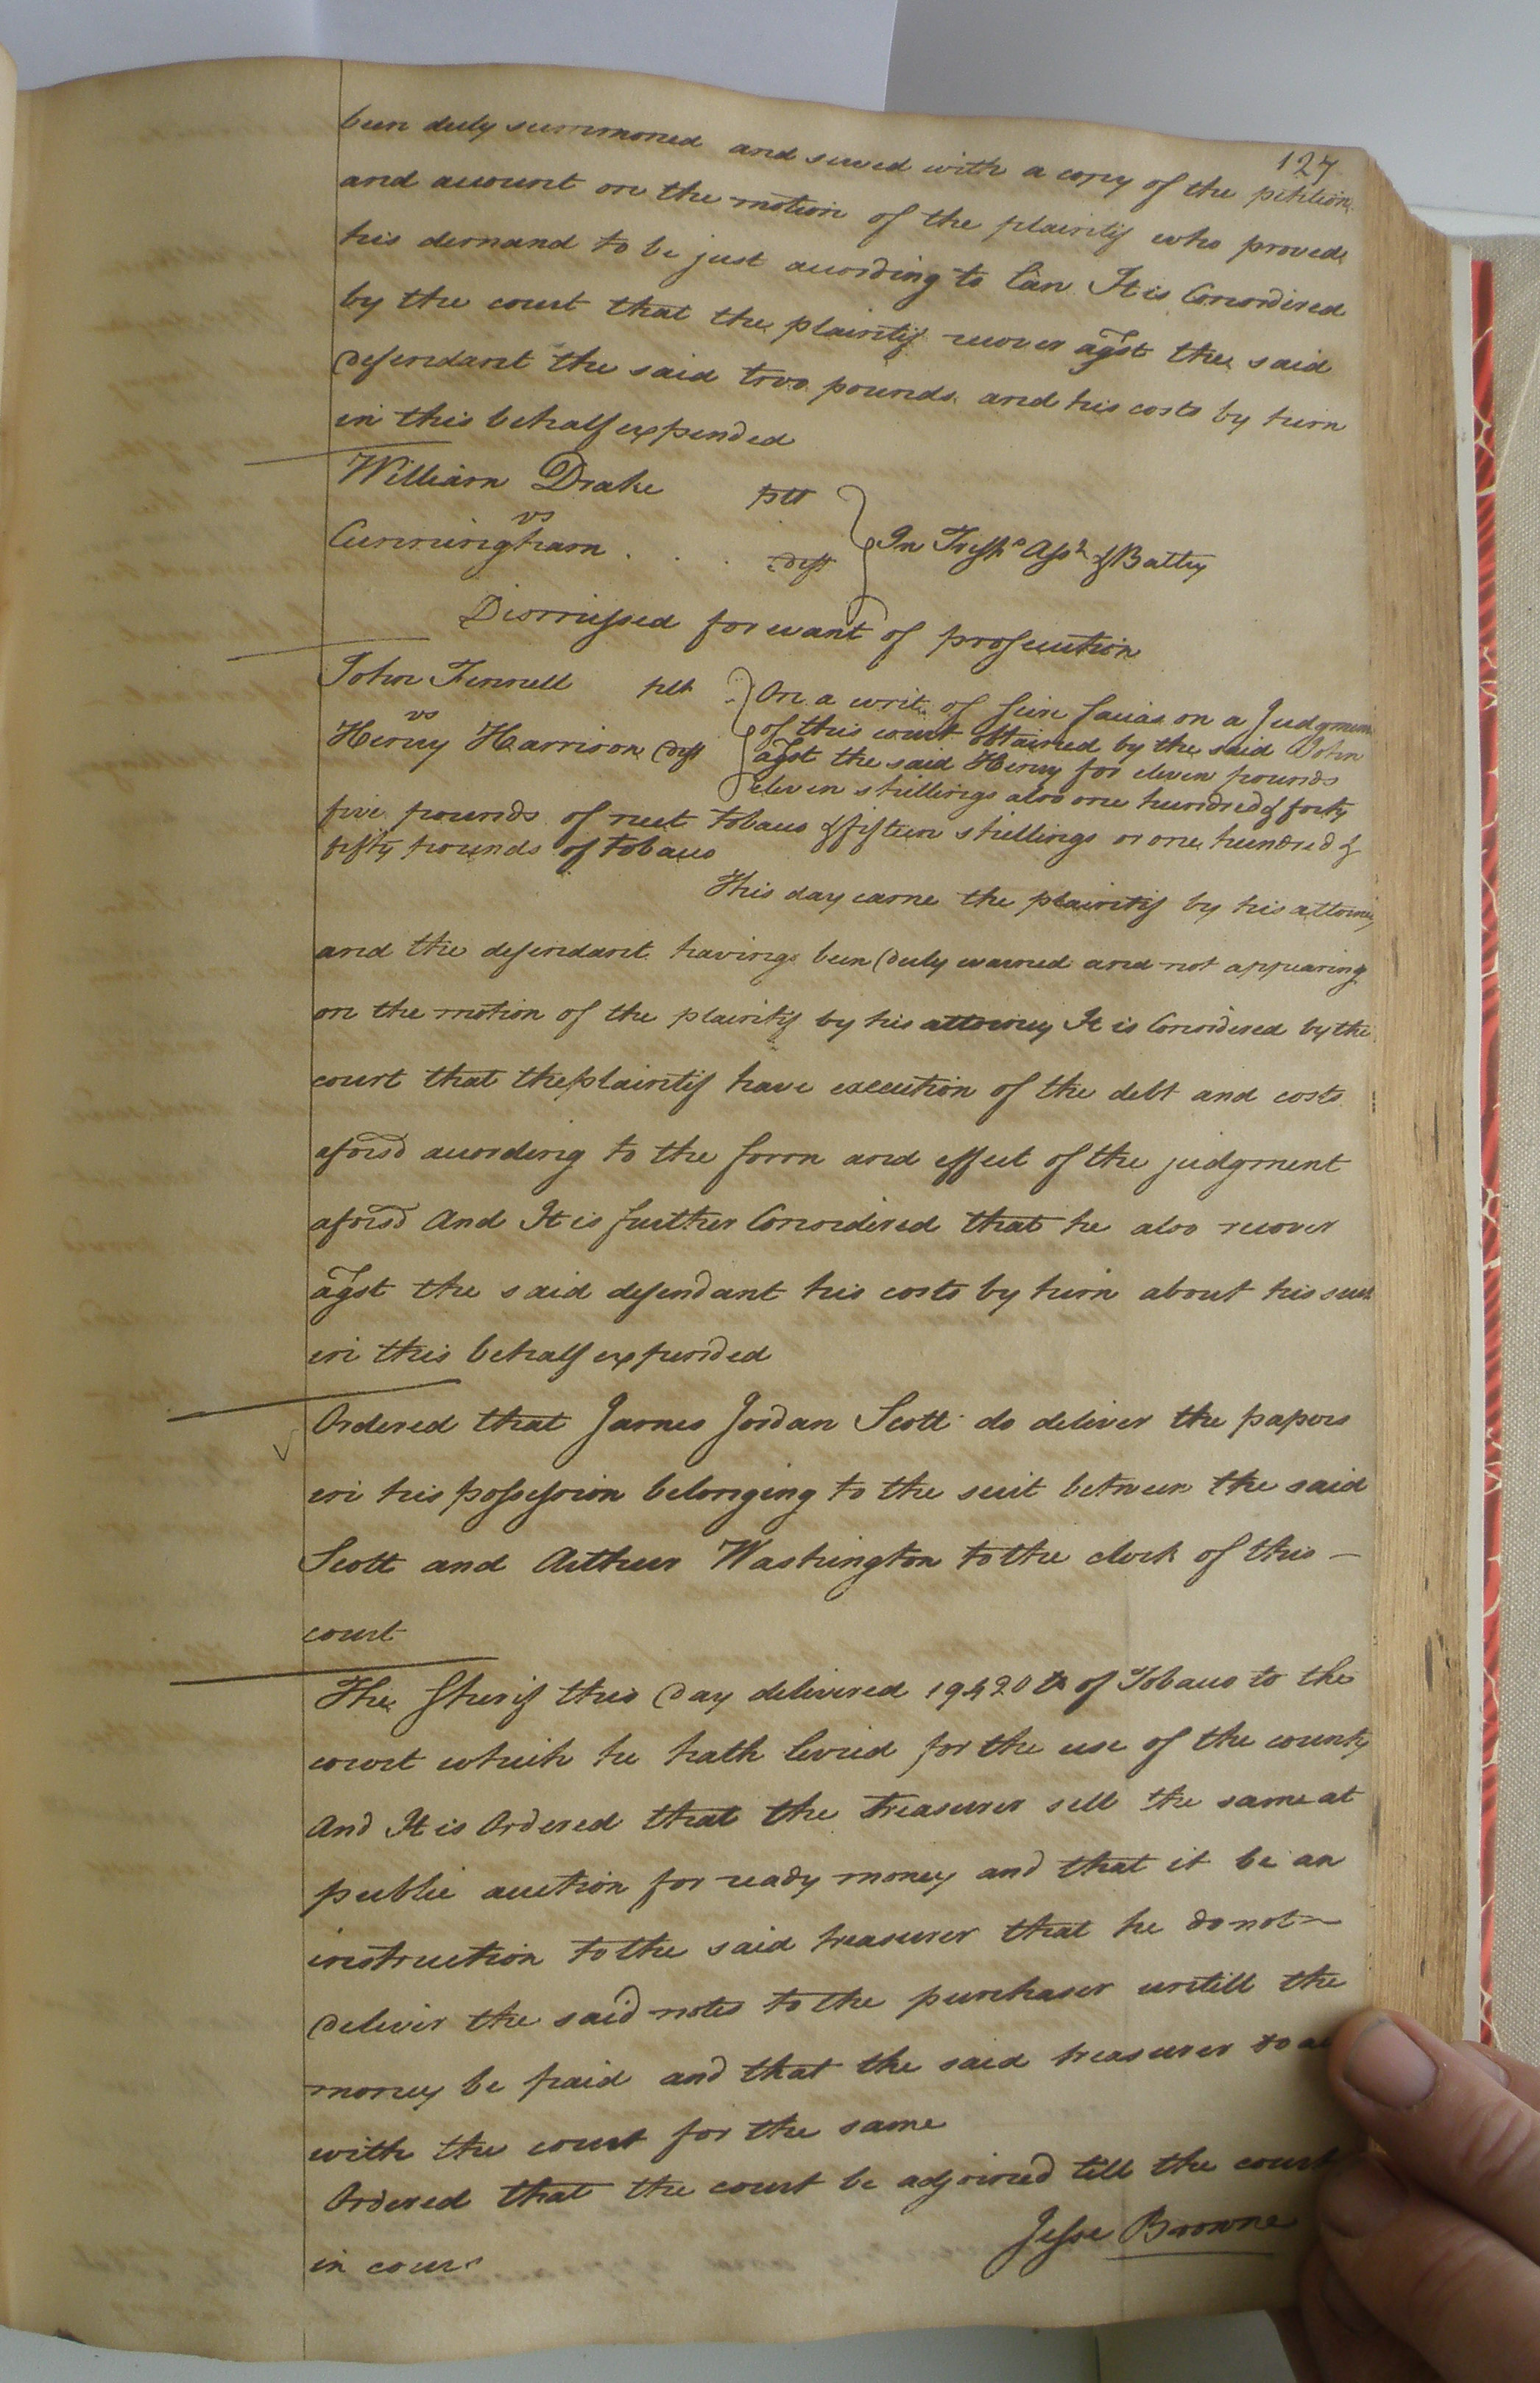 127
been duly summoned and served with a copy of the petition
and account on the motion of the plaintif who proved
his demand to be just according to Law It is Considered
by the court that the plaintif recover agst the said
defendant the said two pounds and his costs by him
in this behalf expended
William Drake plt
vs
Cunningham . . . deft
In Tresps Asst & Battery
Dismissed for want of prosecution
John Fennell plt
vs
Henry Harrison deft
On a writ of scire facias on a Judgment
of this court obtained by the said John
agst the said Henry for eleven pounds
eleven shillings also one hundred & forty
five pounds of neet tobacco & fifteen shillings or one hundred &
fifty pounds of tobacco
This day came the plaintif by his attorney
and the defendant having been duly warned and not appearing
on the motion of the plaintif by his attorney It is Considered by the
court that the plaintif have execution of the debt and costs
aforesd according to the form and effect of the judgment
aforesd And It is further Considered that he also recover
agst the said defendant his costs by him about his suit
in this behalf expended
Ordered that James Jordan Scott do deliver the papers
in his possession belonging to the suit between the said
Scott and Arthur Washington to the clerk of this —
court
The Sherif this day delivered 19420 lb of Tobacco to the
court which he hath levied for the use of the county
And It is Ordered that the Treasurer sell the same at
public auction for ready money and that it be an
instruction to the said treasurer that he do not
deliver the said notes to the purchaser untill the
money be paid and that the said treasurer do
with the court for the same
Ordered that the court be adjorned till the court
in cours
Jesse Browne